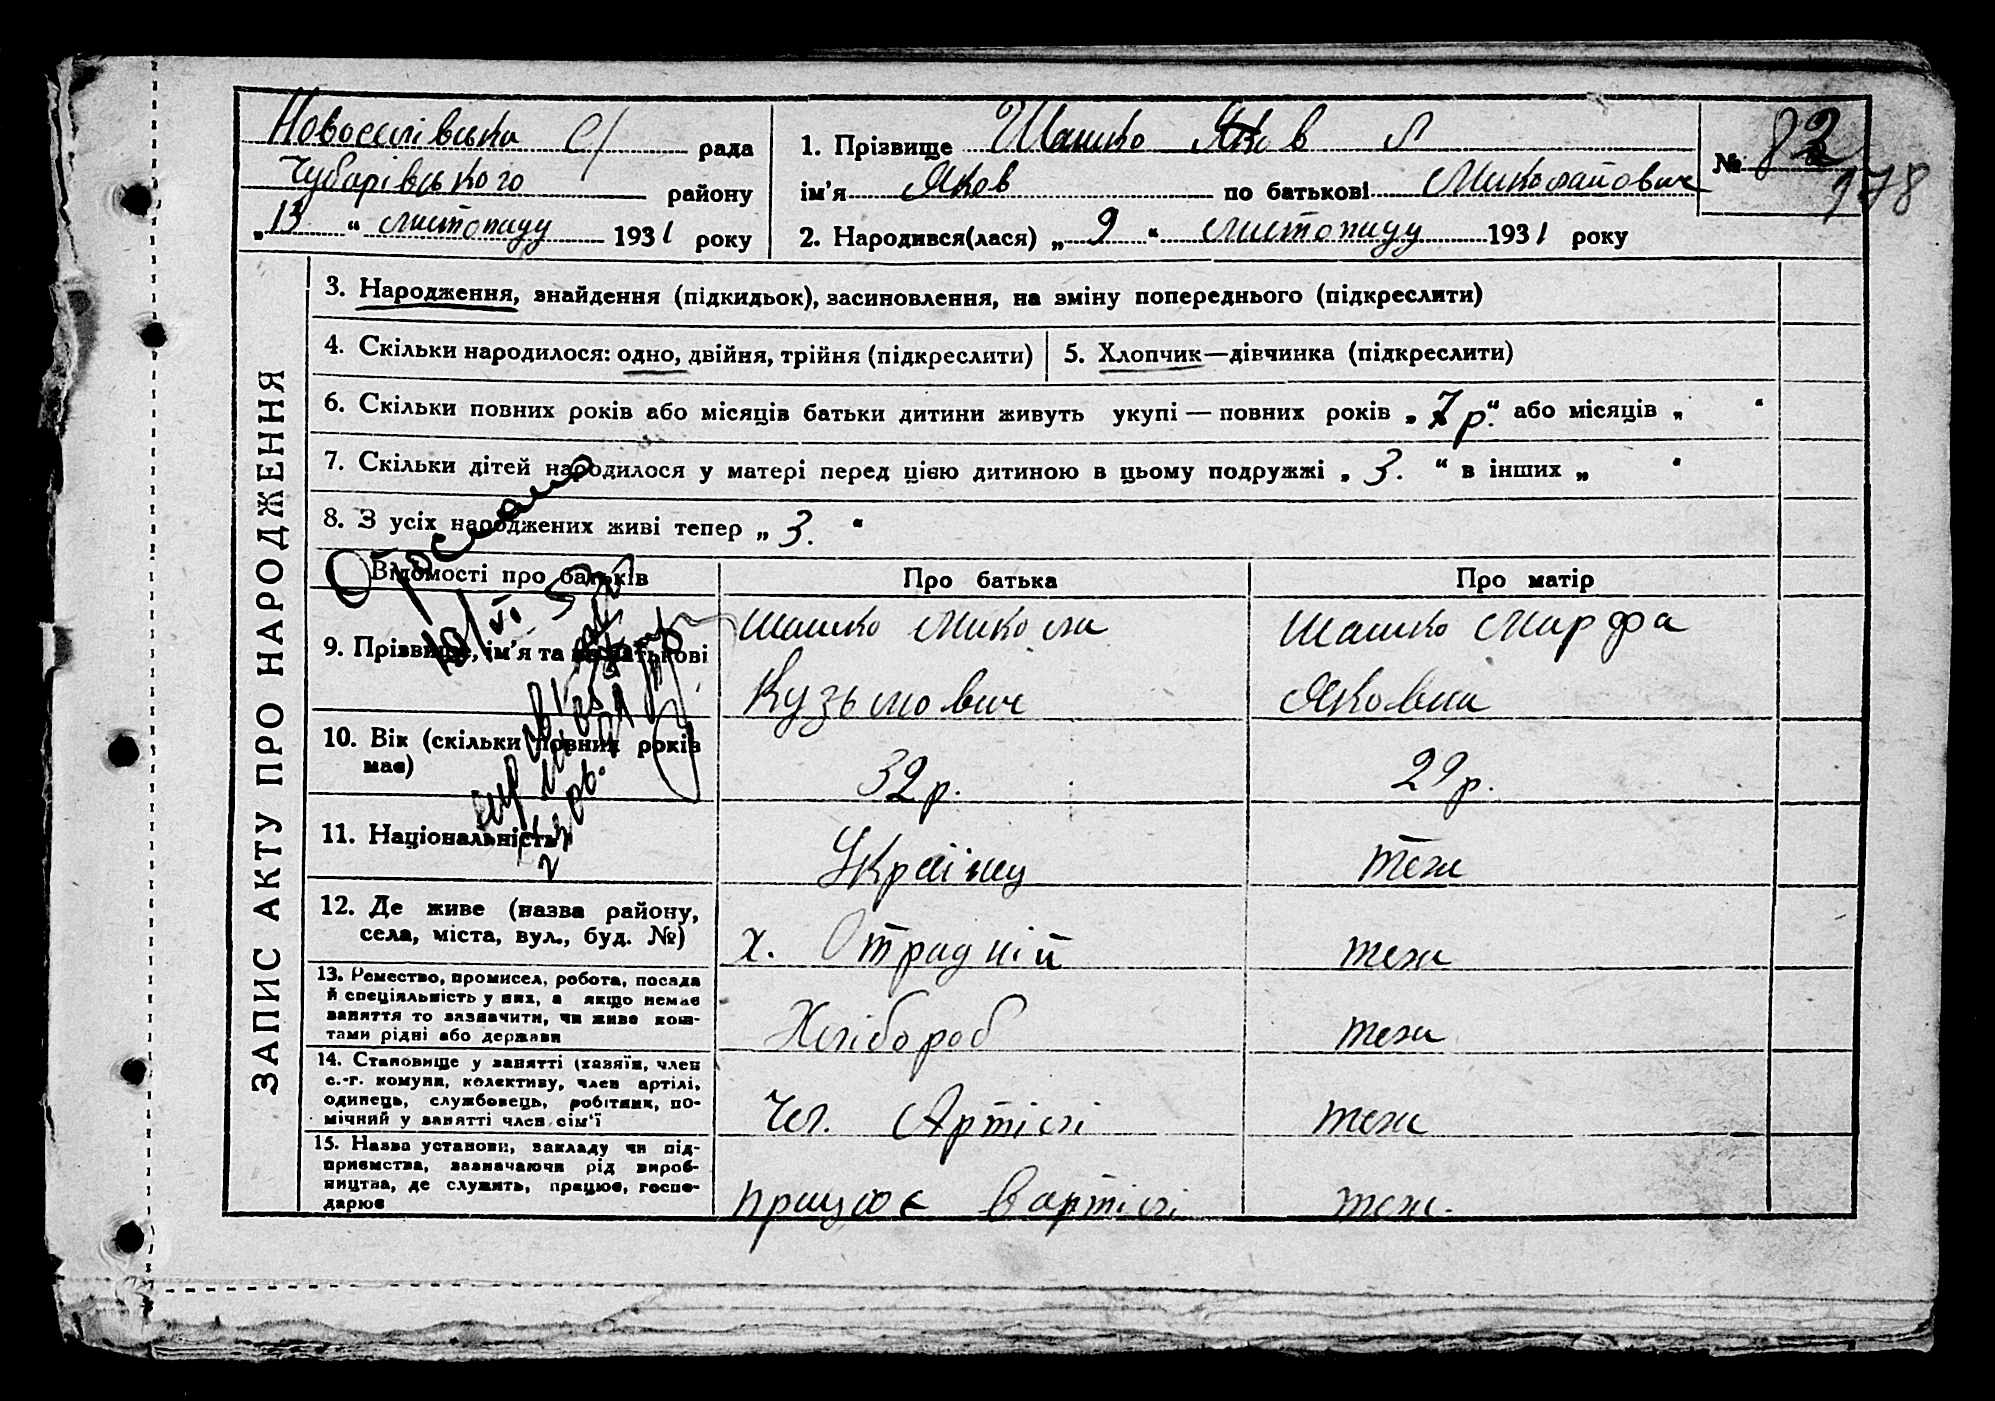 Новоселівська с/ рада
Чубарівського району
„13“ листопаду 1931 року
1. Прізвище Шашко Яків
ім’я Яков по батькові Миколайович
2. Народився(лася) „9“ листопаду 1931 року
№ 82
178
ЗАПИС АКТУ ПРО НАРОДЖЕННЯ
3. Народження, знайдення (підкидьок), засиновлення, на зміну попереднього (підкреслити)
4. Скільки народилося: одно, двійня, трійня (підкреслити)
5. Хлопчик—дівчинка (підкреслити)
6. Скільки повних років або місяців батьки дитини живуть укупі — повних років „7 р.“ або місяців „ “
7. Скільки дітей народилося у матері перед цією дитиною в цьому подружжі „3.“ в інших „ “
8. З усіх народжених живі тепер „3.“
Відомості про батьків
Про батька
Про матір
9. Прізвище, ім’я та по батькові
Шашко Микола
Кузьмович
Шашко Марфа
Яковна
10. Вік (скільки повних років
має)
32 р.
29 р.
11. Національність
Українц
теж
12. Де живе (назва району,
села, міста, вул., буд. №)
х. Отрадній
теж
13. Ремество, промисел, робота, посада
й спеціяльність у них, а якщо немає
заняття то зазначити, чи живе кош-
тами рідні або держави
Хлібороб
теж
14. Становище у занятті (хазяїн, член
с.-г. комуни, колективу, член артілі,
одинець, службовець, робітник, по-
мічний у занятті член сім’ї
Чл. Артілі
теж
15. Назва установи, закладу чи під-
приємства, зазначаючи рід вироб-
ництва, де служить, працює, госпо-
дарює
працює в артілі
теж.